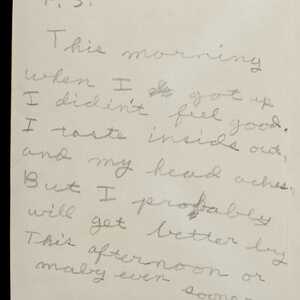 P.S.
This morning
when I got up
I didin't feel good.
I taste insids out,
and my head aches.
But I probably
will get better by
This afternoon or
maby even sooner